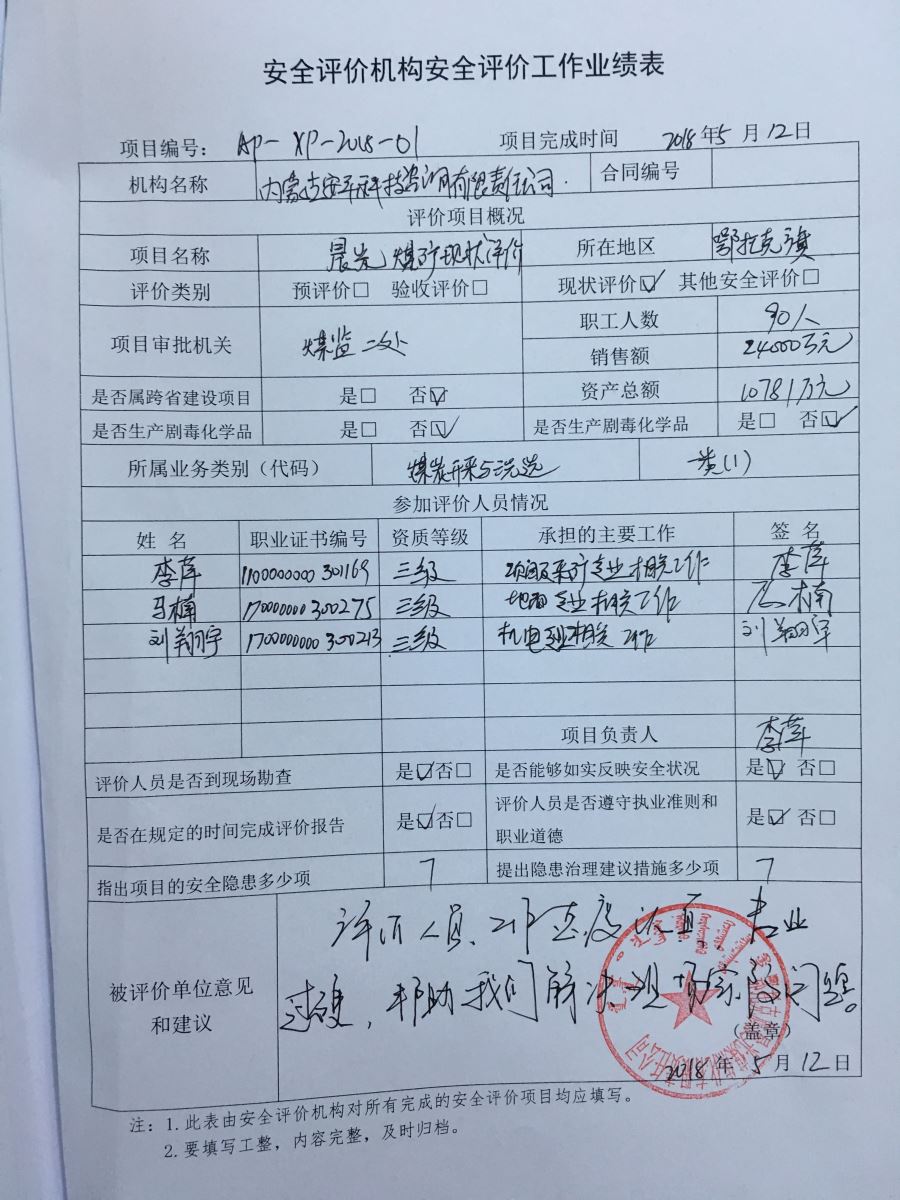 安全评价机构安全评价工作业绩表
项目编号： AP- XP-2018-01 项目完成时间 2018年5月12日
机构名称 内蒙古安平科技咨询有限责任公司. 合同编号
评价项目概况
项目名称 晨光煤矿现状评价 所在地区 鄂托克旗
评价类别 预评价□ 验收评价□ 现状评价☑ 其他安全评价□
项目审批机关 煤监二处 职工人数 90人
销售额 24000万元
是否属跨省建设项目 是□ 否☑ 资产总额 10781万元
是否生产剧毒化学品 是□ 否☑ 是否生产剧毒化学品 是□ 否☑
所属业务类别（代码） 煤炭开采与洗选 一类(1)
参加评价人员情况
姓 名 职业证书编号 资质等级 承担的主要工作 签 名
李萍 1100000000301169 三级 采矿专业相关工作 李萍
马楠 170000000300275 三级 地面专业相关工作 马楠
刘翔宇 1700000000300213 三级 机电专业相关工作 刘翔宇
项目负责人 李萍
评价人员是否到现场勘查 是☑否□ 是否能够如实反映安全状况 是☑ 否□
是否在规定的时间完成评价报告 是☑否□ 评价人员是否遵守执业准则和
职业道德 是☑ 否□
指出项目的安全隐患多少项 7 提出隐患治理建议措施多少项 7
被评价单位意见
和建议
评价人员，工作态度认真，专业
过硬，帮助我们解决现场实际问题。
（盖章）
2018年5月12日
注：1.此表由安全评价机构对所有完成的安全评价项目均应填写。
2.要填写工整，内容完整，及时归档。